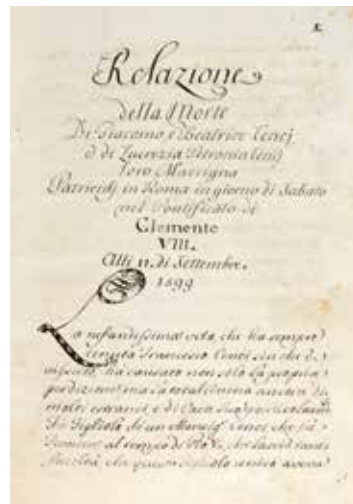 1.
Relazione
della Morte
Di Giacomo e Beatrice Cencj
e di Lucrezia Petronia Cencj
loro Matrigna
Parricidj in Roma in giorno di Sabato
nel Pontificato di
Clemente
VIII.
Alli 11. di Settembre.
1599
La nefandissima vita, che ha sempre
tenuta Francesco Cenci, in che è
ha causato non solo la propria
perdizione, ma la total rovina ancor di
molti estranei, e di Casa Sua
figliolo di un Cenci che fù
al tempo di Pio V. che lasciò tante
che questo figliolo aveva